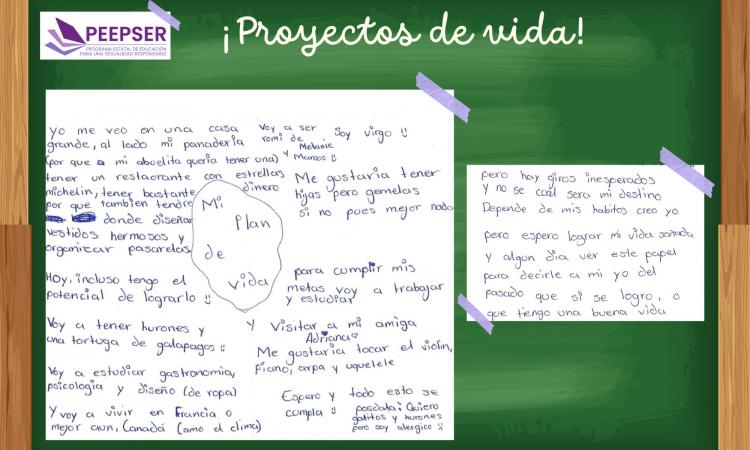 PEEPSER
PROGRAMA ESTATAL DE EDUCACIÓN
PARA UNA SEXUALIDAD RESPONSABLE
¡Proyectos de vida!
yo me veo en una casa
grande, al lado mi panaderia
(por que a mi abuelita queria tener una)
tener un restaorante con estrellas
michelin, tener bastante dinero
por que tambien tendre
donde diseñar
vestidos hermosos y
organizar pasarelas
Hoy, incluso tengo el
potencial de lograrlo
Voy a tener hurones y
una tortuga de galapagos
Voy a estudiar gastronomia,
psicologia y diseño (de ropa)
Y voy a vivir en Francia o
mejor aun, Canadá (amo el clima)
Mi
Plan
de
vida
Voy a ser
romi de
Melanie
y Marcos
Soy virgo
Me gustaria tener
hijas pero gemelas
si no pues mejor nada
para cumplir mis
metas voy a trabajar
y estudiar
Y visitar a mi amiga
Adriana
Me gustaria tocar el violin,
piano, arpa y uquelele
Espero y todo esto se
cumpla
posdata: Quiero
gatitos y hurones
pero soy alergico
pero hay giros inesperados
y no se cual sera mi destino
Depende de mis habitos creo yo
pero espero lograr mi vida soñada
y algun dia ver este papel
para decirle a mi yo del
pasado que si se logro, o
que tengo una buena vida